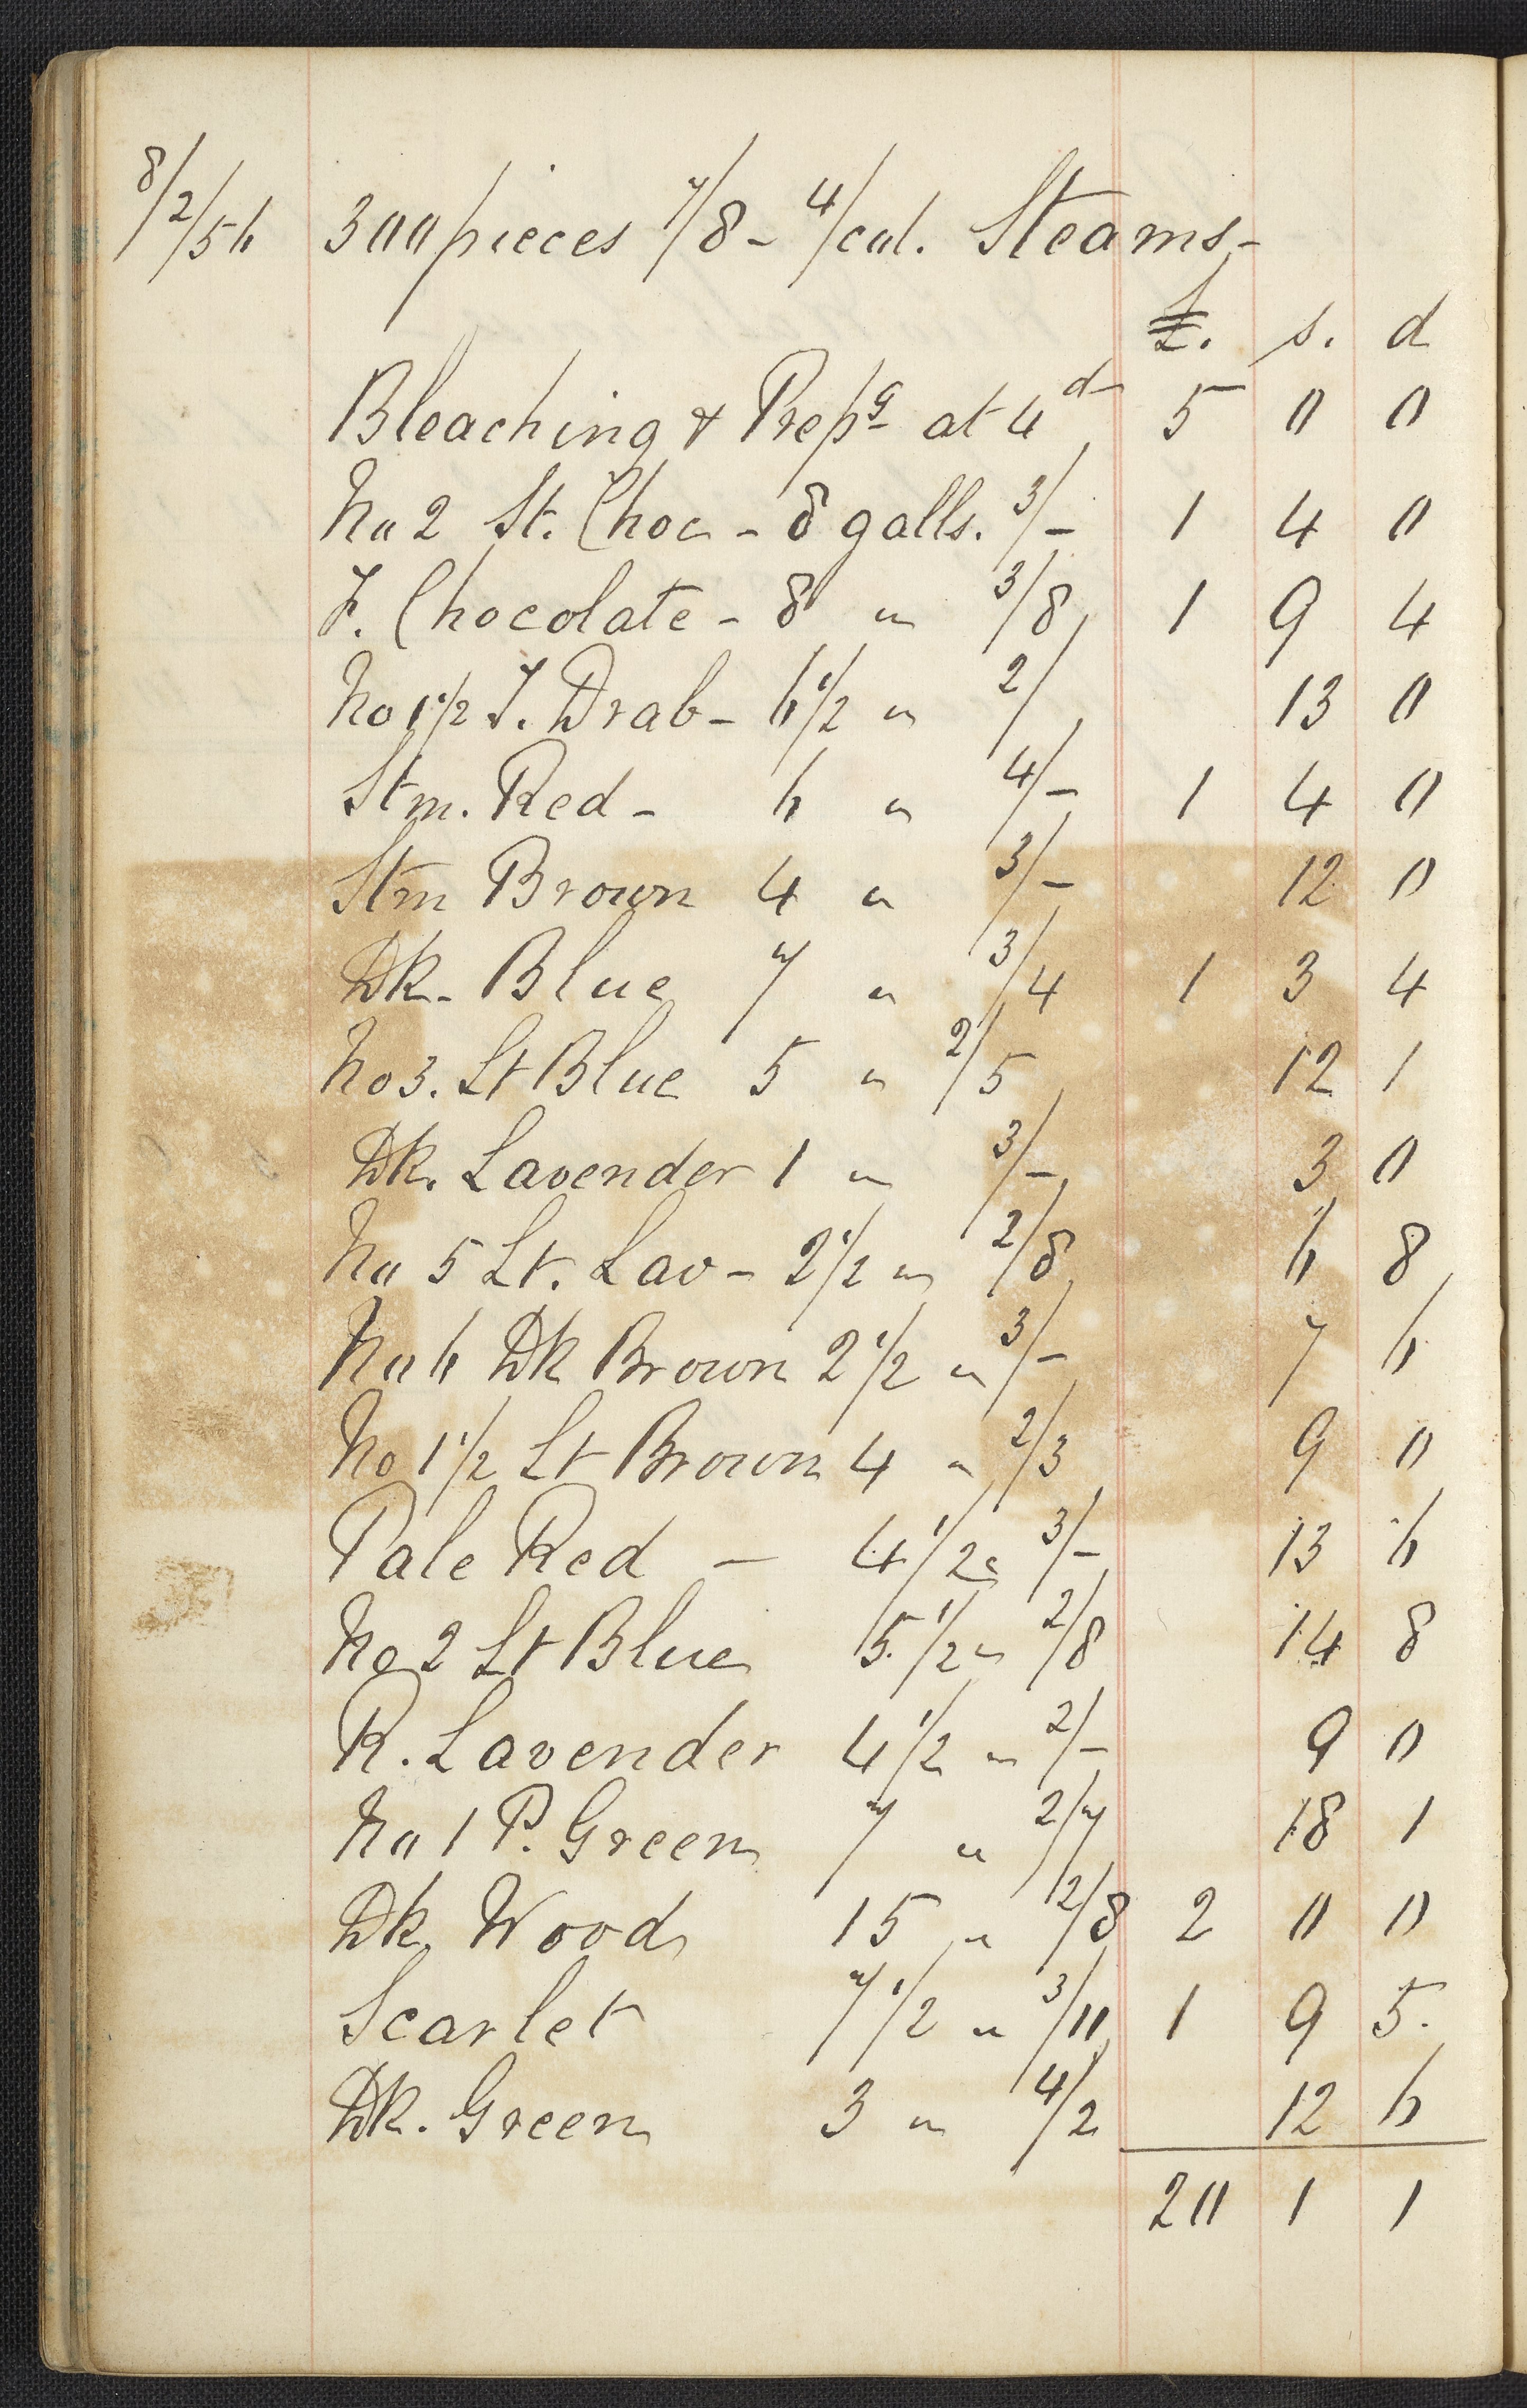 8/2/56 300 pieces 7/8 - 4/col. Steams -
£. s. d
Bleaching & Prepg at 4d 5 0 0
No 2 St. Choc - 8 galls. 3/- 1 4 0
F. Chocolate - 8 " 3/8 1 9 4
No 1 1/2 F. Drab - 6 1/2 " 2/ 13 0
Stm. Red - 6 " 4/- 1 4 0
Stm Brown 4 " 3/- 12 0
Dk - Blue 7 " 3/4 1 3 4
No 3. Lt Blue 5 " 2/5 12 1
Dk. Lavender 1 " 3/- 3 0
No 5 Lt. Lav - 2 1/2 " 2/8 6 8
No 6 Dk Brown 2 1/2 " 3/- 7 6
No 1 1/2 Lt Brown 4 " 2/3 9 0
Pale Red - 4 1/2 " 3/- 13 6
No 2 Lt Blue 5 1/2 " 2/8 14 8
R. Lavender 4 1/2 " 2/- 9 0
No 1 P. Green 7 " 2/7 18 1
Dk Wood 15 " 2/8 2 0 0
Scarlet 7 1/2 " 3/11 1 9 5.
Dk. Green 3 " 4/2 12 6
20 1 1